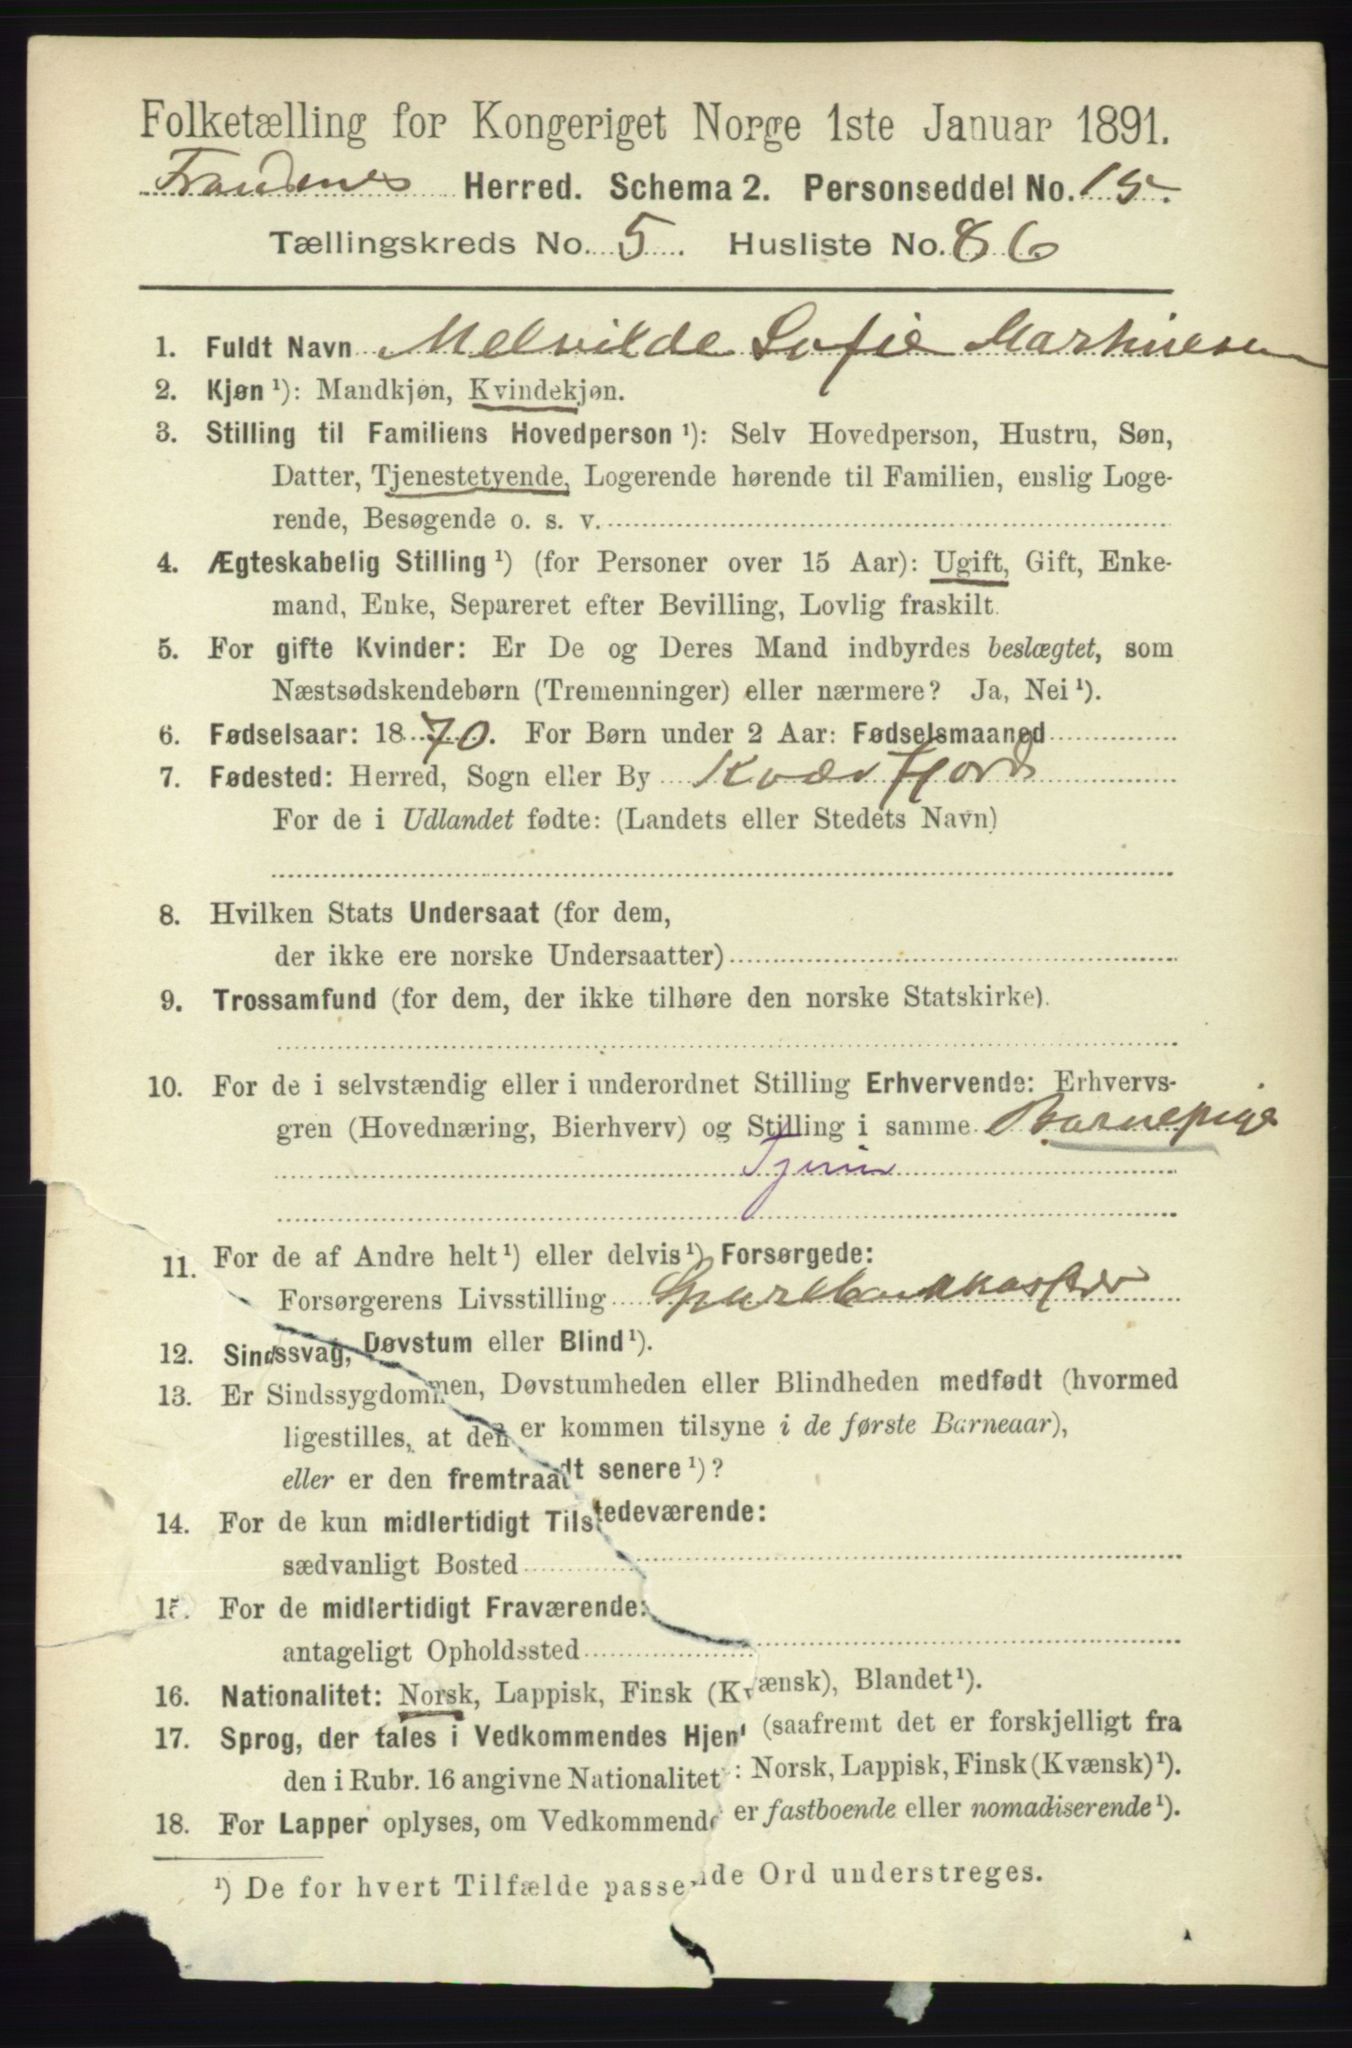 Folketælling for Kongeriget Norge 1ste Januar 1891.
Trondenes Herred. Schema 2. Personseddel No. 15.
Tællingskreds No. 5. Husliste No. 86
1. Fuldt Navn Melvilde Sofie Marthinesen
2. Kjøn ¹): Mandkjøn, Kvindekjøn.
3. Stilling til Familiens Hovedperson ¹): Selv Hovedperson, Hustru, Søn,
Datter, Tjenestetyende, Logerende hørende til Familien, enslig Loge-
rende, Besøgende o. s. v.
4. Ægteskabelig Stilling ¹) (for Personer over 15 Aar): Ugift, Gift, Enke-
mand, Enke, Separeret efter Bevilling, Lovlig fraskilt.
5. For gifte Kvinder: Er De og Deres Mand indbyrdes beslægtet, som
Næstsødskendebørn (Tremenninger) eller nærmere? Ja, Nei ¹).
6. Fødselsaar: 1870. For Børn under 2 Aar: Fødselsmaaned
7. Fødested: Herred, Sogn eller By Kvæfjord
For de i Udlandet fødte: (Landets eller Stedets Navn)
8. Hvilken Stats Undersaat (for dem,
der ikke ere norske Undersaatter)
9. Trossamfund (for dem, der ikke tilhøre den norske Statskirke).
10. For de i selvstændig eller i underordnet Stilling Erhvervende: Erhvervs-
gren (Hovednæring, Bierhverv) og Stilling i samme Barnepige
11. For de af Andre helt ¹) eller delvis ¹) Forsørgede:
Forsørgerens Livsstilling
12. Sindssvag, Døvstum eller Blind ¹).
13. Er Sindssygdommen, Døvstumheden eller Blindheden medfødt (hvormed
ligestilles, at den er kommen tilsyne i de første Barneaar),
eller er den fremtraadt senere ¹)?
14. For de kun midlertidigt Tilstedeværende:
sædvanligt Bosted
15. For de midlertidigt Fraværende:
antageligt Opholdssted
16. Nationalitet: Norsk, Lappisk, Finsk (Kvænsk), Blandet ¹).
17. Sprog, der tales i Vedkommendes Hjem (saafremt det er forskjelligt fra
den i Rubr. 16 angivne Nationalitet): Norsk, Lappisk, Finsk (Kvænsk) ¹).
18. For Lapper oplyses, om Vedkommende er fastboende eller nomadiserende ¹).
¹) De for hvert Tilfælde passende Ord understreges.